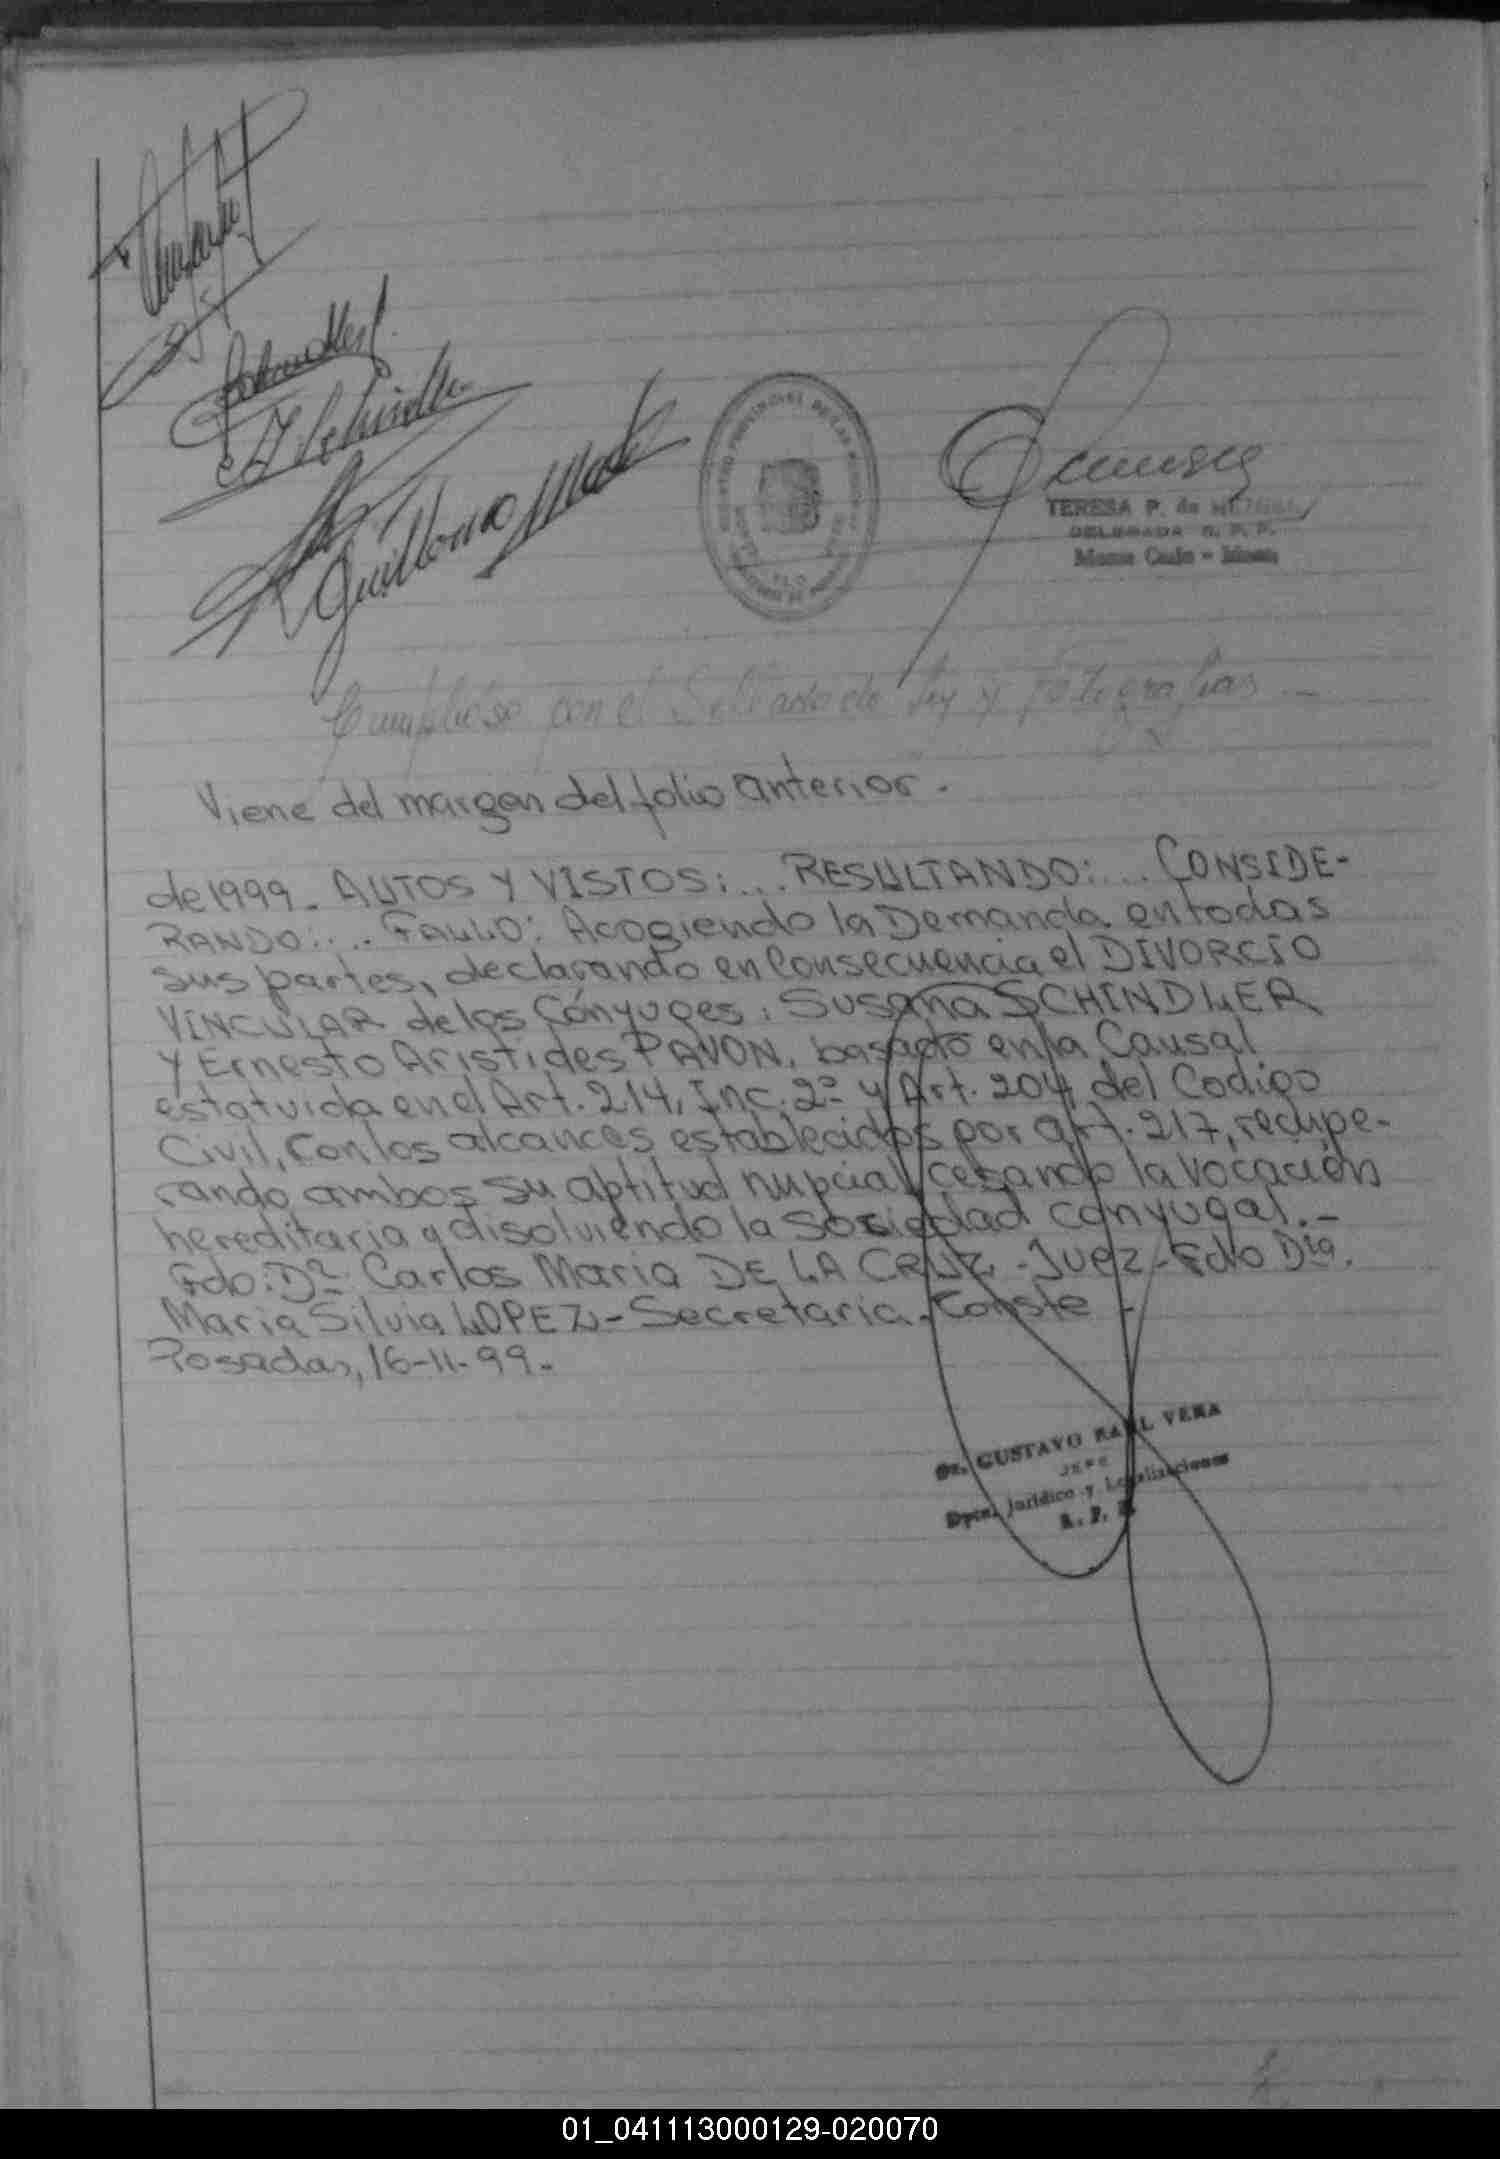 Schindler
Guillermo
REGISTRO PROVINCIAL DE LAS
TERESA P. de
DELEGADA R. P. P.
Cumplióse con el Sellado de ley y fotografías
Viene del margen del folio anterior.
de 1999. AUTOS Y VISTOS:... RESULTANDO:... CONSIDE-
RANDO:... FALLO: Acogiendo la Demanda en todas
sus partes, declarando en Consecuencia el DIVORCIO
VINCULAR de los Cónyuges: Susana SCHINDLER
Y Ernesto Aristides PAVON, basado en la Causal
estatuida en el Art. 214, Inc. 2º y Art. 204 del Codigo
Civil, Con los alcances establecidos por art. 217, recupe-
rando ambos su aptitud nupcial, cesando la vocación
hereditaria y disolviendo la sociedad conyugal.-
Fdo: Dº Carlos Maria DE LA CRUZ - Juez - Fdo Dra.
Maria Silvia LOPEZ - Secretaria. Conste -
Posadas, 16-11-99.
Dr. GUSTAVO RAUL VERA
JEFE
Dpto. Jurídico y Legalizaciones
R. P. P.
01_041113000129-020070